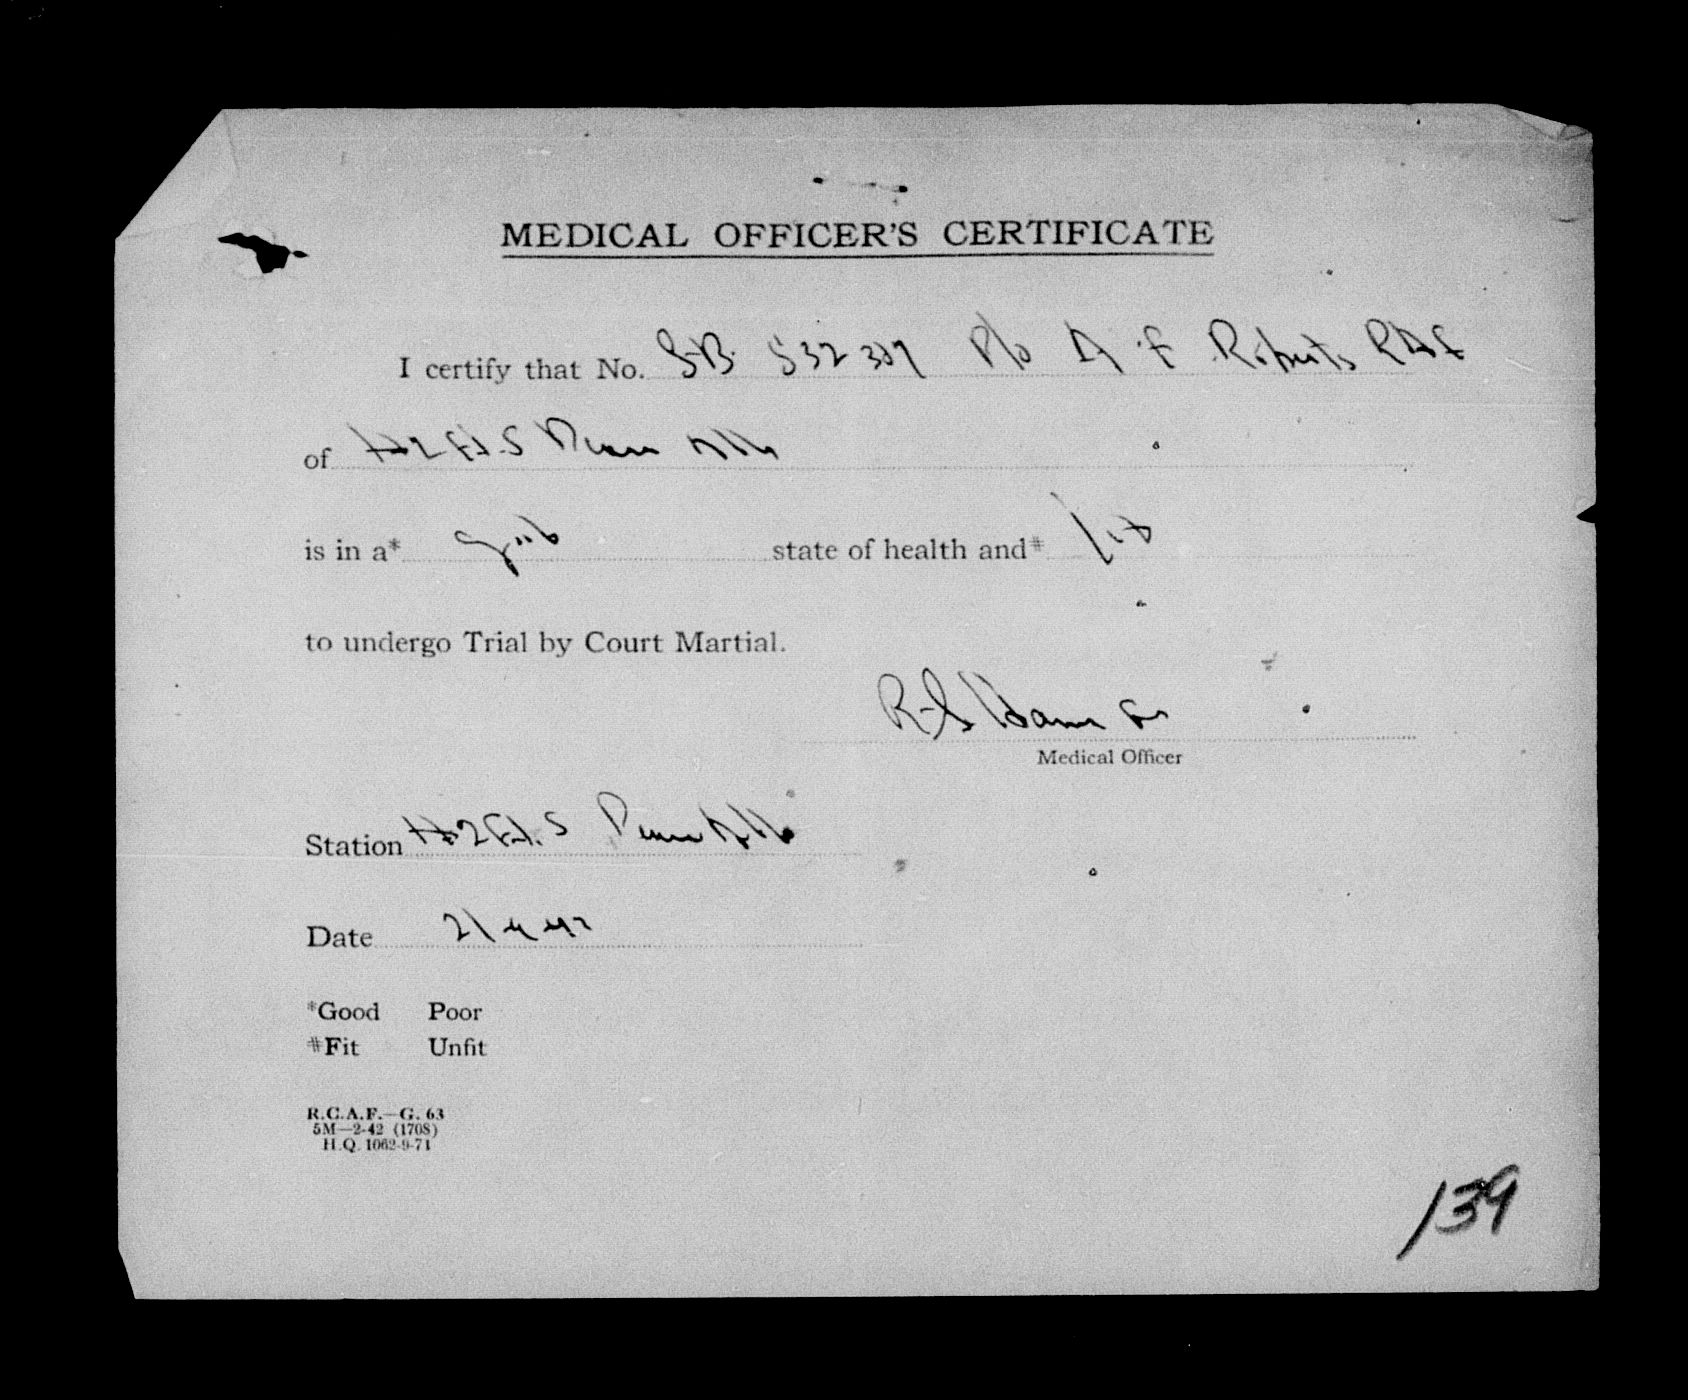 MEDICAL OFFICER'S CERTIFICATE
I certify that No. 532307 P/o A. F. Roberts RAF
of #2
is in a* good state of health and# fit
to undergo Trial by Court Martial.
Medical Officer
Station #2
Date 21 4 42
*Good Poor
#Fit Unfit
R.C.A.F.—G. 63
5M—2-42 (1708)
H.Q. 1062-9-71
139